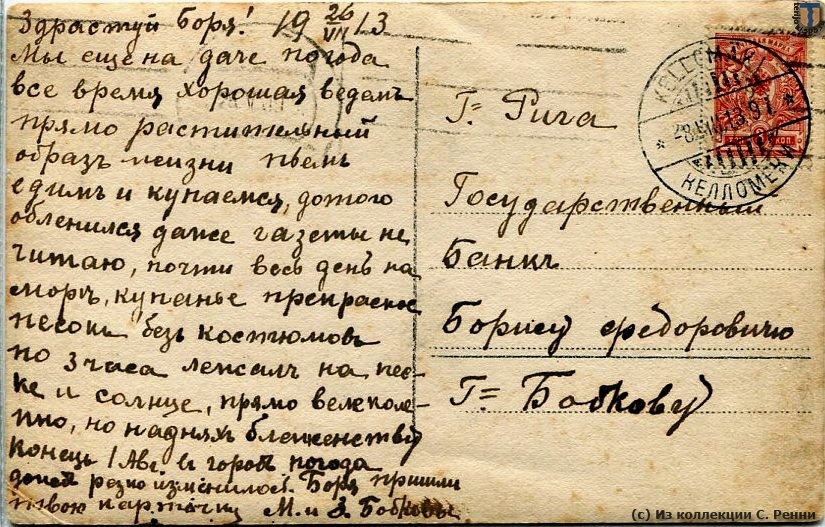 Здраствуй Боря! 19 26/VII 13
Мы еще на даче погода
все время хорошая ведемъ
прямо растительный
образъ жизни пьемъ
едимъ и купаемся, дотого
обленился даже газеты не
читаю, почти весь день на
морѣ, купанье прекрасное
песокъ безъ костюмовъ
по 3 часа лежалъ на пес-
ке и солнце, прямо велеколе-
пно, но на дняхъ блаженству
конецъ 1 Авг въ городъ погода
резко изменилось. Боря пришли
твою карточку М. и З. Бобковы.
Гъ= Рига
Государственный
Банкъ
Борису Федоровичю
Гъ= Бобкову
KELLOMÄKI
28.VII.13.91
КЕЛЛОМЯКИ
(c) Из коллекции С. Ренни